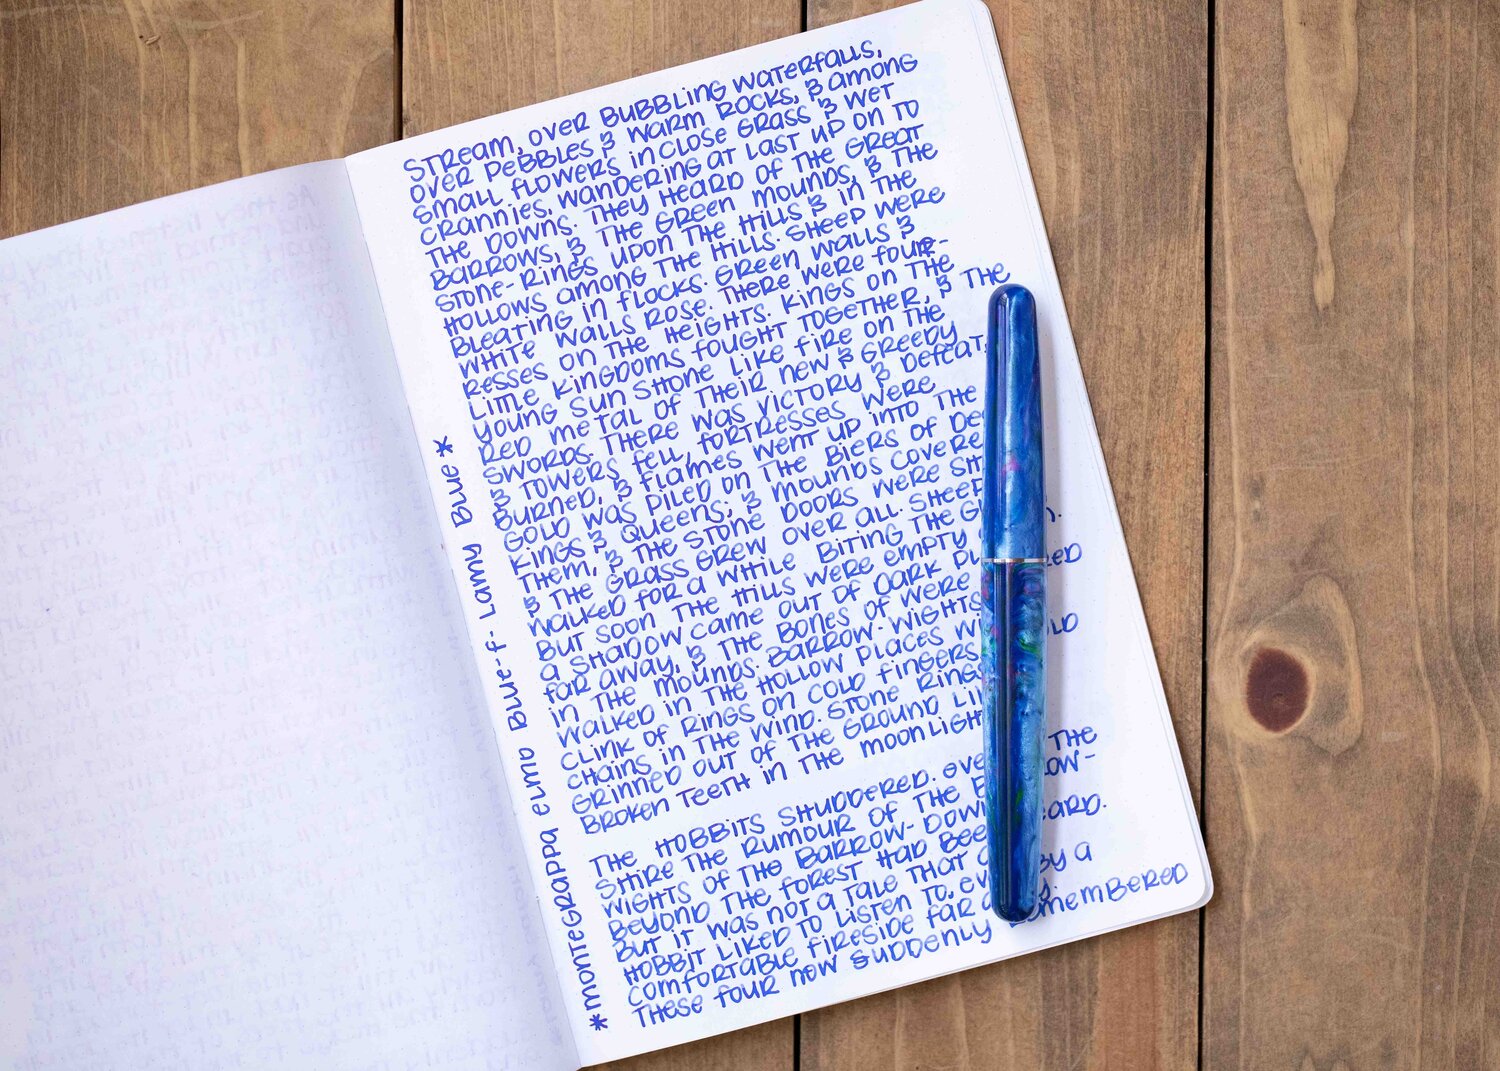 STREAM, OVER BUBBLING WATERFALLS,
OVER PEBBLES & WARM ROCKS, & AMONG
SMALL FLOWERS IN CLOSE GRASS & WET
CRANNIES, WANDERING AT LAST UP ON TO
THE DOWNS. THEY HEARD OF THE GREAT
BARROWS, & THE GREEN MOUNDS, & THE
STONE-RINGS UPON THE HILLS & IN THE
HOLLOWS AMONG THE HILLS. SHEEP WERE
BLEATING IN FLOCKS. GREEN WALLS &
WHITE WALLS ROSE. THERE WERE FOUR-
RESSES ON THE HEIGHTS. KINGS ON THE
LITTLE KINGDOMS FOUGHT TOGETHER, & THE
YOUNG SUN SHONE LIKE FIRE ON THE
RED METAL OF THEIR NEW & GREEDY
SWORDS. THERE WAS VICTORY & DEFEAT,
& TOWERS FELL, FORTRESSES WERE
BURNED, & FLAMES WENT UP INTO THE
GOLD WAS PILED ON THE BIERS OF
KINGS & QUEENS, & MOUNDS
THEM, & THE STONE DOORS WERE
& THE GRASS GREW OVER ALL. SHEEP
WALKED FOR A WHILE BITING THE
BUT SOON THE HILLS WERE EMPTY
A SHADOW CAME OUT OF DARK
FAR AWAY, & THE BONES OF WERE
IN THE MOUNDS. BARROW-WIGHTS
WALKED IN THE HOLLOW PLACES
CLINK OF RINGS ON COLD FINGERS,
CHAINS IN THE WIND. STONE RINGS
GRINNED OUT OF THE GROUND
BROKEN TEETH IN THE MOONLIGHT
THE HOBBITS SHUDDERED. THE
SHIRE THE RUMOUR OF THE
WIGHTS OF THE BARROW-DOWNS
BEYOND THE FOREST HAD BEEN HEARD.
BUT IT WAS NOT A TALE THAT
HOBBIT LIKED TO LISTEN TO, BY A
COMFORTABLE FIRESIDE FAR
THESE FOUR NOW SUDDENLY REMEMBERED
*MONTEGRAPPA ELMO BLUE-F- LAMY BLUE*